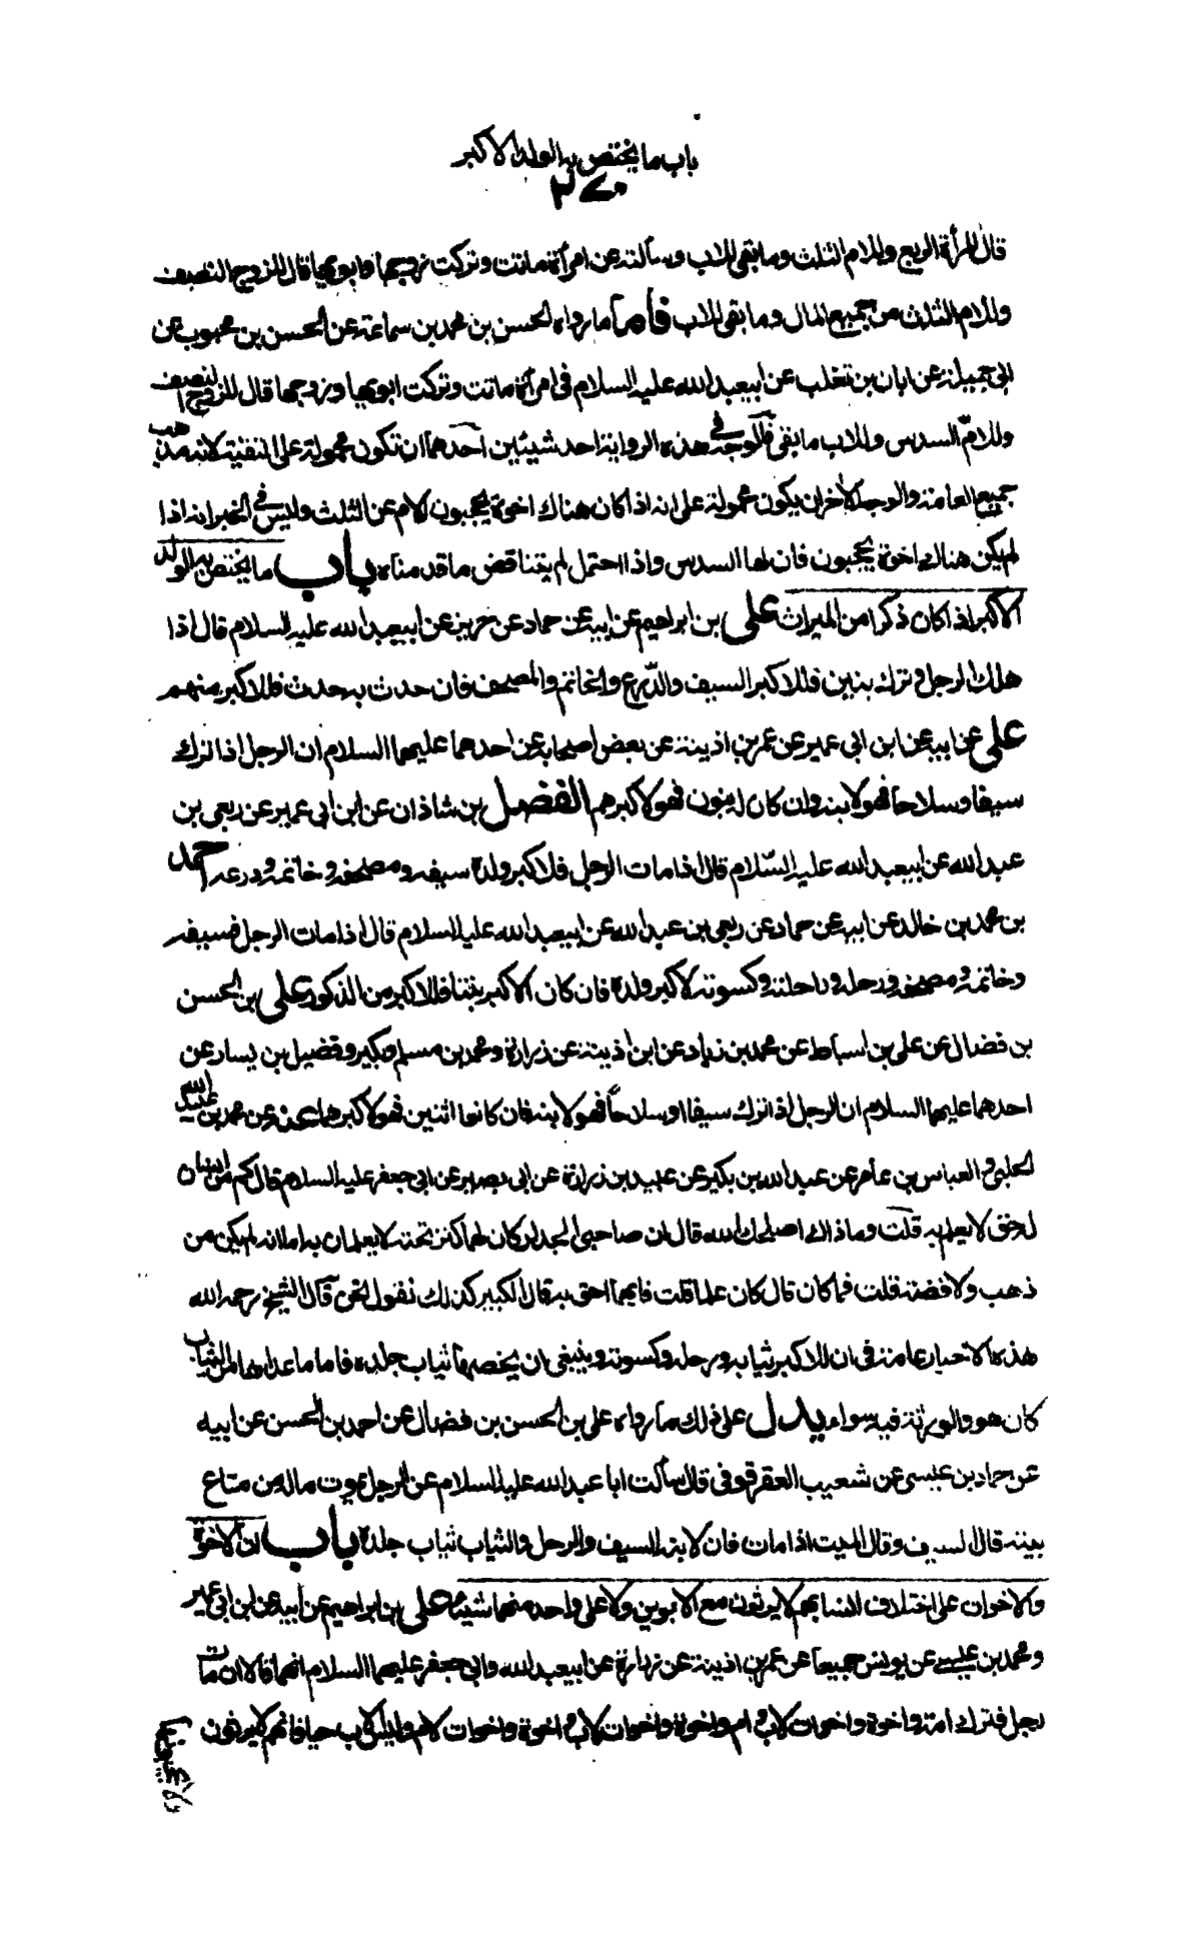 باب ما يختص به الولد الاكبر
٢٧٠
قال للمرأة الربع وللام الثلث وما بقى للاب وسألته عن امرأة ماتت وتركت زوجها وابويها قال للزوج النصف
وللام الثلث من جميع المال وما بقى للاب فأما ما رواه الحسن بن محمد بن سماعة عن الحسن بن محبوب عن
ابى جميلة عن ابان بن تغلب عن ابيعبد الله عليه السلام فى امرأة ماتت وتركت ابويها وزوجها قال للزوج النصف
وللامّ السدس وللاب ما بقى فالوجه فى هذه الرواية احد شيئين احدهما ان تكون محمولة على التقية لانه مذهب
جميع العامة والوجه الاخر ان يكون محمولة على انه اذا كان هناك اخوة يحجبون الام عن الثلث وليس فى الخبر انه اذا
لم يكن هناك اخوة يحجبون فان لها السدس واذا احتمل لم يتناقض ما قدمناه باب ما يختص به الولد
الاكبر اذا كان ذكرا من الميراث على بن ابراهيم عن ابيه عن حماد عن حريز عن ابيعبد الله عليه السلام قال اذا
هلك الرجل وترك بنين فللاكبر السيف والدّرع والخاتم والمصحف فان حدث به حدث فللاكبر منهم
على عن ابيه عن ابن ابى عمير عن عمر بن اذينة عن بعض اصحابه عن احدهما عليهما السلام ان الرجل اذا ترك
سيفا وسلاحا فهو لابنه وان كان له بنون فهو لاكبرهم الفضل بن شاذان عن ابن ابى عمير عن ربعى بن
عبد الله عن ابيعبد الله عليه السّلام قال اذا مات الرجل فلاكبر ولده سيفه ومصحفه وخاتمه ودرعه احمد
بن محمد بن خالد عن ابيه عن حماد عن ربعى بن عبد الله عن ابيعبد الله عليه السلام قال اذا مات الرجل فسيفه
وخاتمه ومصحفه ورحله وراحلته وكسوته لاكبر ولده فان كان الاكبر بنتا فللاكبر من الذكور على بن الحسن
بن فضال عن على بن اسباط عن محمد بن زياد عن ابن اذينة عن زرارة ومحمد بن مسلم وبكير وفضيل بن يسار عن
احدهما عليهما السلام ان الرجل اذا ترك سيفا او سلاحاً فهو لابنه فان كانوا اثنين فهو لاكبرهما عنه عن محمد بن عبيد الله
الحلبى والعباس بن عامر عن عبد الله بن بكير عن عبيد بن زرارة عن ابى بصير عن ابى جعفر عليه السلام قال كم من انسان
له حق لا يعلم به قلت وما ذاك اصلحك الله قال ان صاحبى الجدار كان لهما كنز تحته لا يعلمان به اما انه لم يكن من
ذهب ولا فضة قلت فما كان قال كان علما قلت فايهما احق به قال الكبير كذلك نقول نحن قال الشيخ رحمه الله
هذه الاخبار عامة فى ان للاكبر ثيابه ورحله وكسوته وينبغى ان يخصها ثياب جلده فاما ما عداها من الثياب
كان هو والورثة فيه سواء يدل على ذلك ما رواه على بن الحسن بن فضال عن احمد بن الحسن عن ابيه
عن حماد بن عيسى عن شعيب العقرقوفى قال سألت ابا عبد الله عليه السلام عن الرجل يموت ماله من متاع
بيته قال السيف وقال الميت اذا مات فان لابنه السيف والرحل والثياب ثياب جلده باب ان الاخوة
والاخوات على اختلاف انسابهم لا يرثون مع الابوين ولا على واحد منهما شيئا على بن ابراهيم عن ابيه عن ابن ابى عمير
ومحمد بن عيسى عن يونس جميعا عن عمر بن اذينة عن زرارة عن ابيعبد الله وابى جعفر عليهما السلام انهما قالا ان مات
رجل فترك امه واخوة واخوات لاب وام واخوة واخوات لاب واخوة واخوات لام وليس الاب حيا فانهم لا يرثون